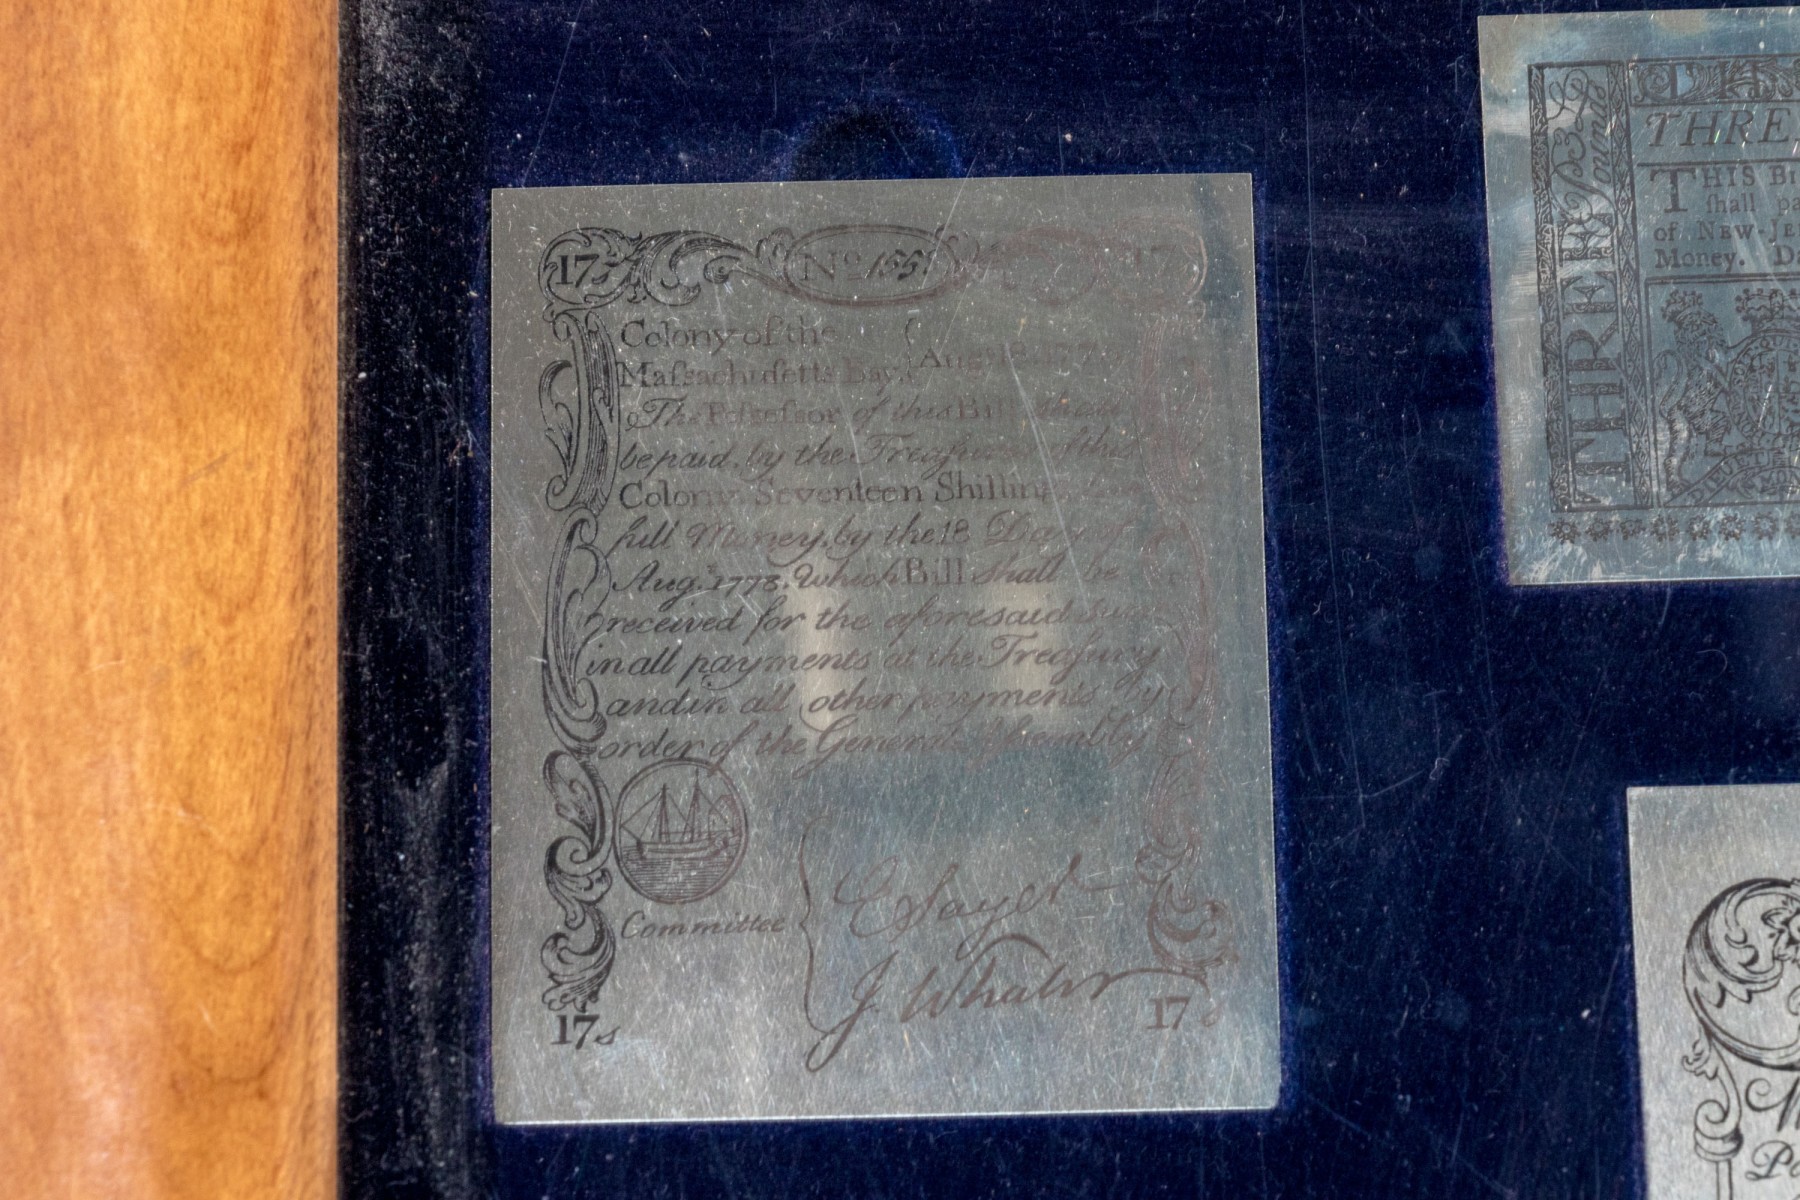 17s
No 155
17
Colony of the
Massachusetts Bay. Aug. 18. 177
The Possessor of this Bill shall
be paid by the Treasurer of this
Colony Seventeen Shillings
full Money. by the 18 Day of
Aug. 1778. Which Bill shall be
received for the aforesaid Sum
in all payments at the Treasury
and in all other payments by
order of the General Assembly
Committee
J. Whater
17s
17
THREE Pounds
THRE
THIS Bi
shall pa
of NEW-JE
Money. Da
DIEU ET